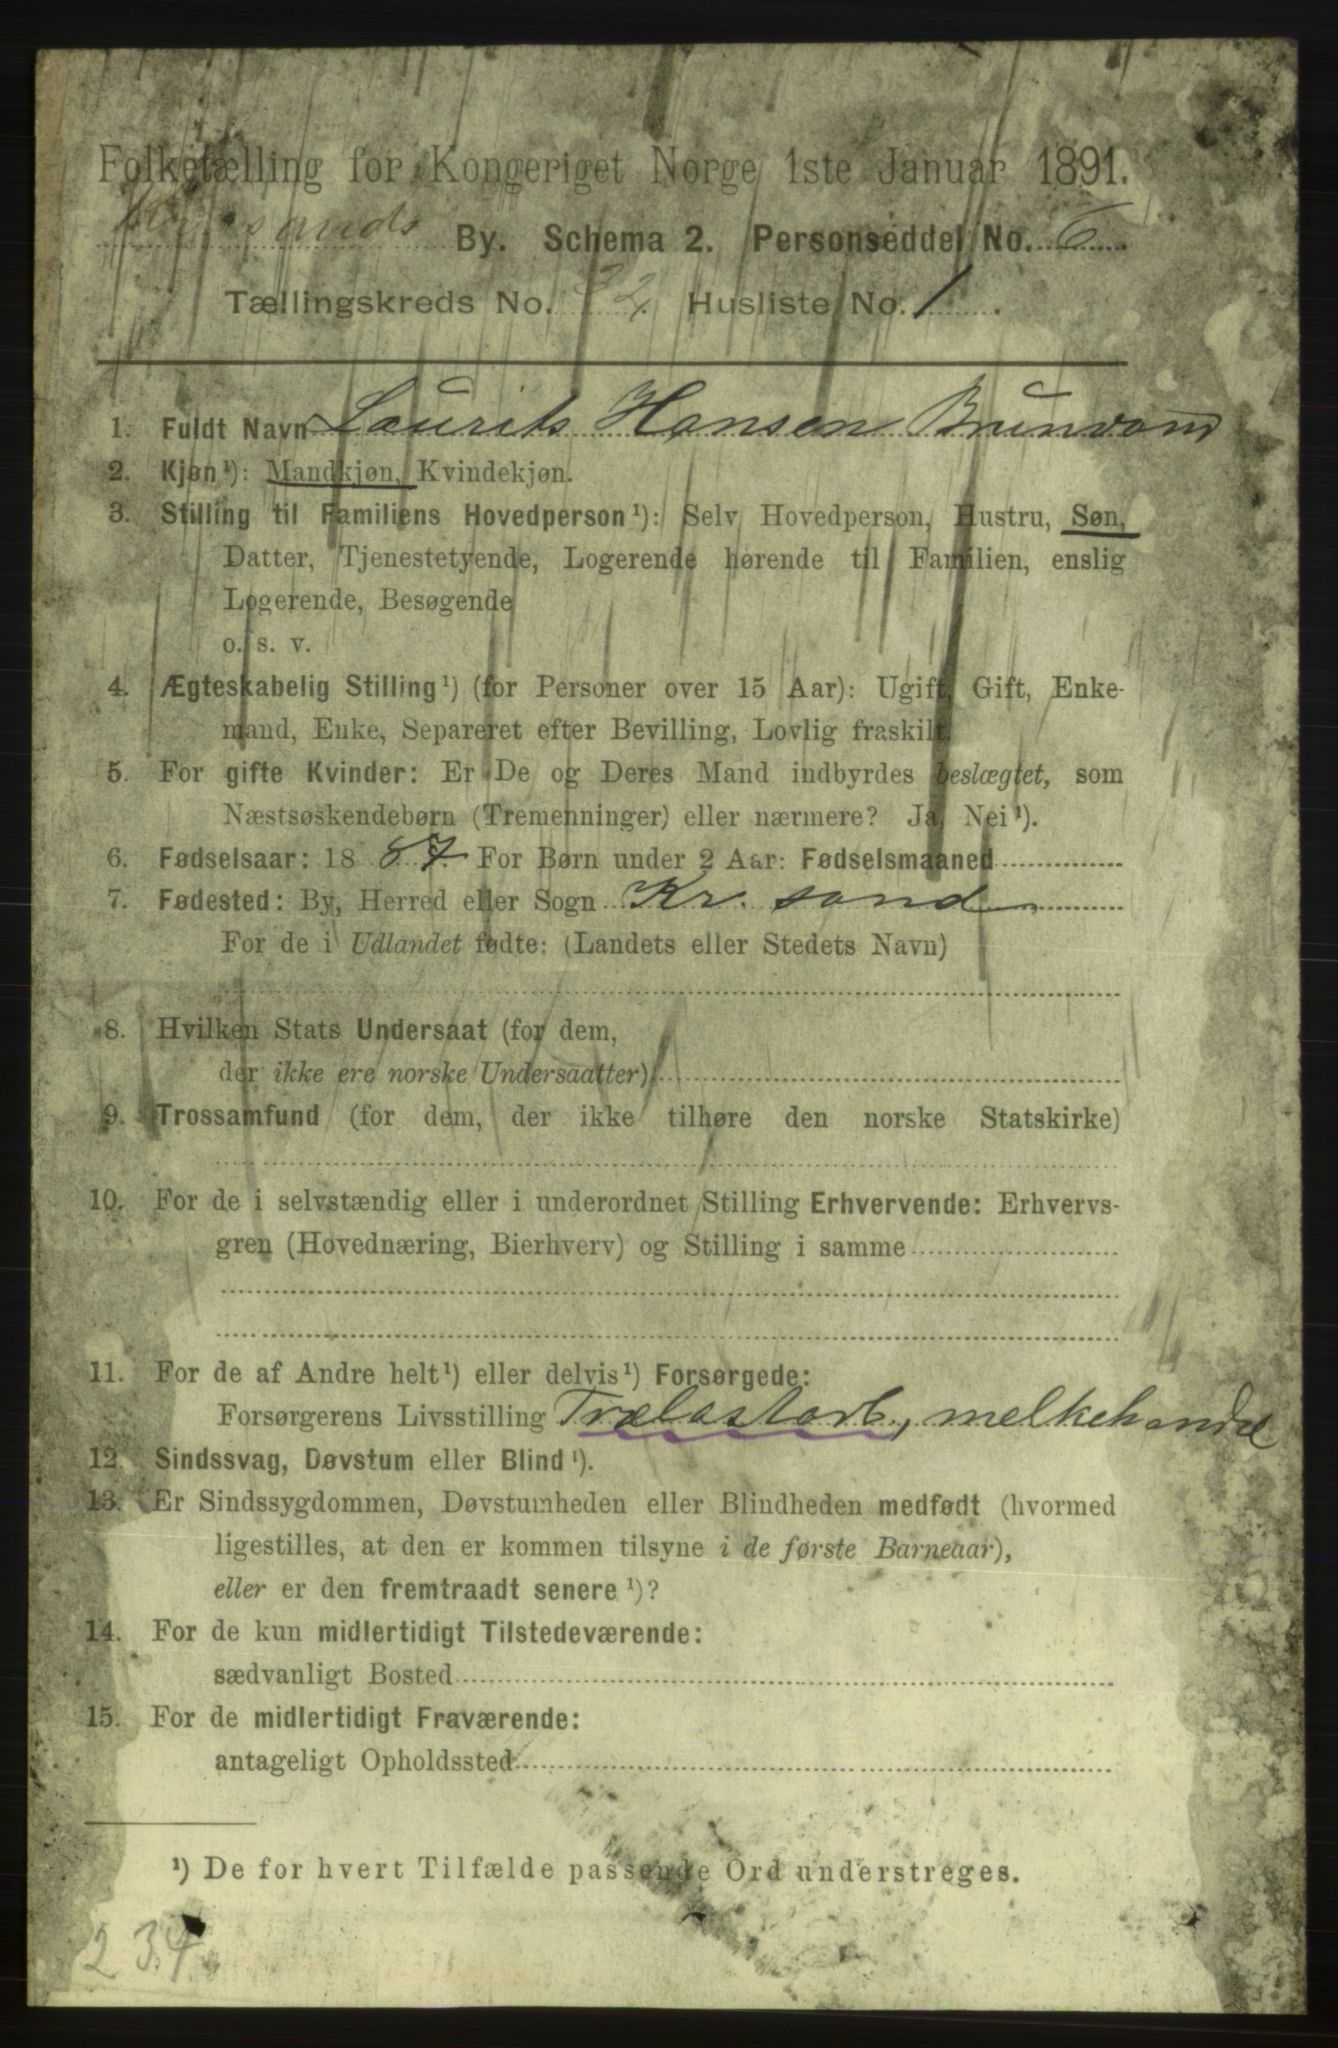 Folketælling for Kongeriget Norge 1ste Januar 1891.
sands By. Schema 2. Personseddel No. 6.
Tællingskreds No. 32. Husliste No. 1.
1. Fuldt Navn Laurits Hansen Brunvand
2. Kjøn¹): Mandkjøn, Kvindekjøn.
3. Stilling til Familiens Hovedperson¹): Selv Hovedperson, Hustru, Søn,
Datter, Tjenestetyende, Logerende hørende til Familien, enslig
Logerende, Besøgende
o. s. v.
4. Ægteskabelig Stilling¹) (for Personer over 15 Aar): Ugift, Gift, Enke-
mand, Enke, Separeret efter Bevilling, Lovlig fraskilt.
5. For gifte Kvinder: Er De og Deres Mand indbyrdes beslægtet, som
Næstsøskendebørn (Tremenninger) eller nærmere? Ja, Nei¹).
6. Fødselsaar: 1887. For Børn under 2 Aar: Fødselsmaaned
7. Fødested: By, Herred eller Sogn Kr. sand
For de i Udlandet fødte: (Landets eller Stedets Navn)
8. Hvilken Stats Undersaat (for dem,
der ikke ere norske Undersaatter)
9. Trossamfund (for dem, der ikke tilhøre den norske Statskirke)
10. For de i selvstændig eller i underordnet Stilling Erhvervende: Erhvervs-
gren (Hovednæring, Bierhverv) og Stilling i samme
11. For de af Andre helt¹) eller delvis¹) Forsørgede:
Forsørgerens Livsstilling Trælastarb., melkehandel
12. Sindssvag, Døvstum eller Blind¹).
13. Er Sindssygdommen, Døvstumheden eller Blindheden medfødt (hvormed
ligestilles, at den er kommen tilsyne i de første Barneaar),
eller er den fremtraadt senere¹)?
14. For de kun midlertidigt Tilstedeværende:
sædvanligt Bosted
15. For de midlertidigt Fraværende:
antageligt Opholdssted
¹) De for hvert Tilfælde passende Ord understreges.
234